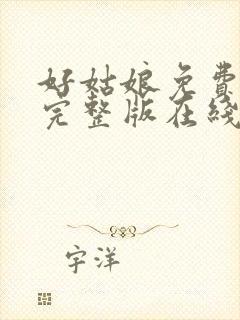 好姑娘免費
完整版在綫
宇洋